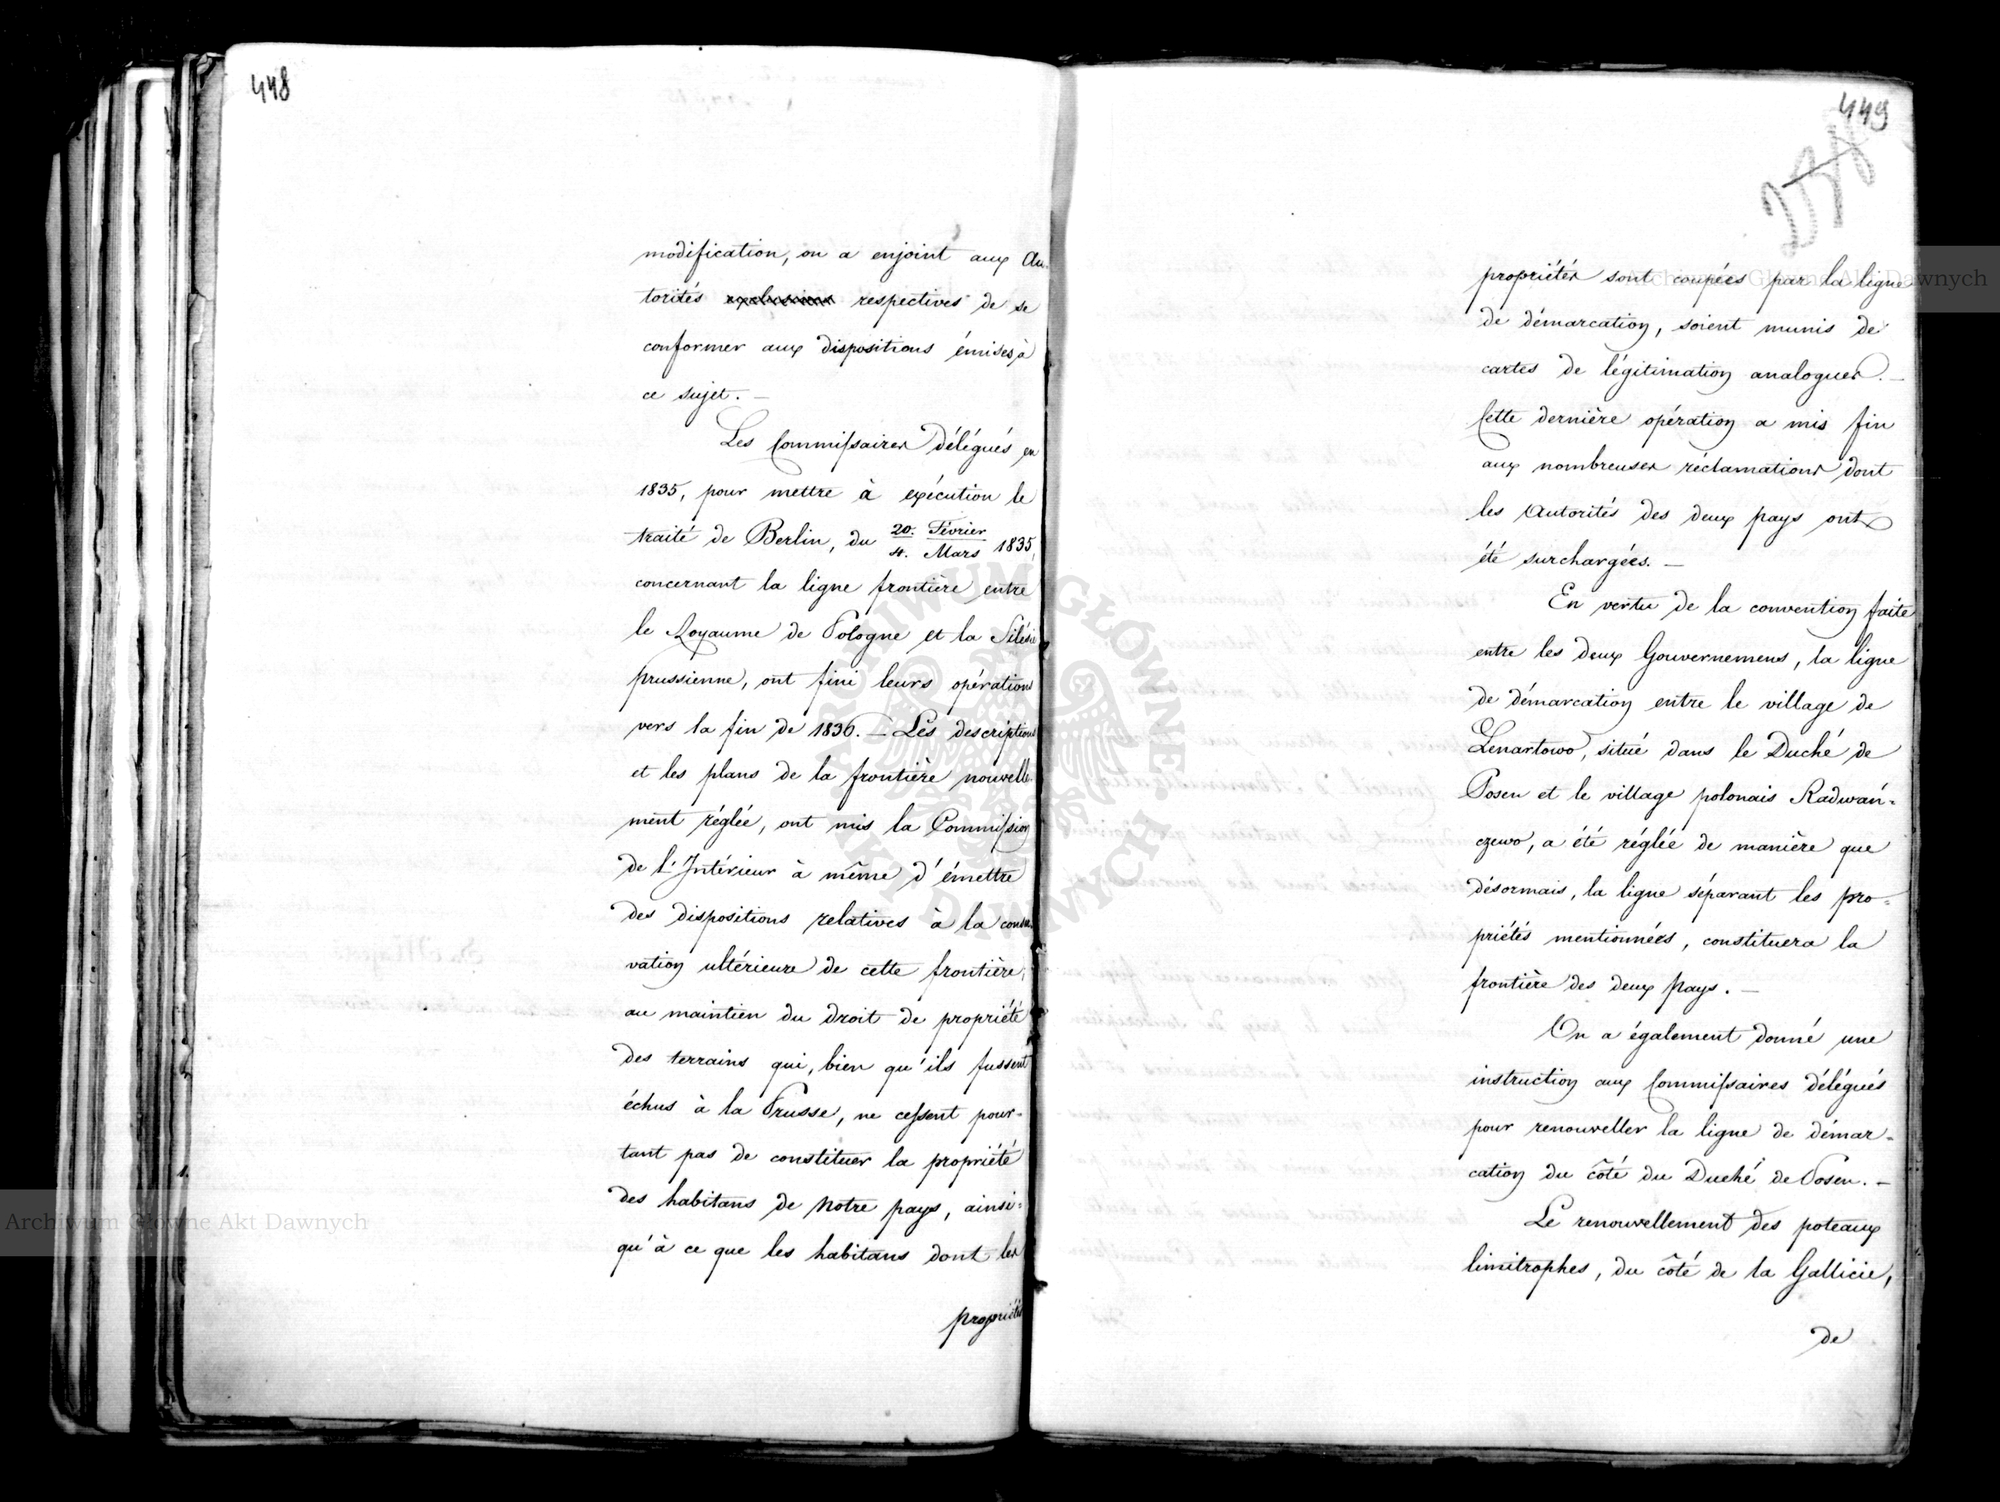 448
modification, on a enjoint aux Au-
torités respectives de se
conformer aux dispositions émises à
ce sujet. —
Les Commissaires délégués en
1835, pour mettre à exécution le
traité de Berlin, du 20. Février / 4. Mars 1835,
concernant la ligne frontière entre
le Royaume de Pologne et la Silésie
prussienne, ont fini leurs opérations
vers la fin de 1836. — Les descriptions
et les plans de la frontière nouvelle-
ment réglée, ont mis la Commission
de l'Intérieur à même d'émettre
des dispositions relatives à la conser-
vation ultérieure de cette frontière,
au maintien du droit de propriété
des terrains qui, bien qu'ils fussent
échus à la Prusse, ne cessent pour-
tant pas de constituer la propriété
des habitans de notre pays, ainsi-
qu'à ce que les habitans dont les
propriétés
449
propriétés sont coupées par la ligne
de démarcation, soient munis de
cartes de légitimation analogues. —
Cette dernière opération a mis fin
aux nombreuses réclamations dont
les Autorités des deux pays ont
été surchargées. —
En vertu de la convention faite
entre les deux Gouvernemens, la ligne
de démarcation entre le village de
Lenartowo, situé dans le Duché de
Posen et le village polonais Radwań-
czewo, a été réglée de manière que
désormais, la ligne séparant les pro-
priétés mentionnées, constituera la
frontière des deux Pays. —
On a également donné une
instruction aux Commissaires délégués
pour renouveller la ligne de démar-
cation du côté du Duché de Posen. —
Le renouvellement des poteaux
limitrophes, du côté de la Gallicie,
de
ARCHIWUM GŁÓWNE AKT DAWNYCH
Archiwum Główne Akt Dawnych
Archiwum Główne Akt Dawnych